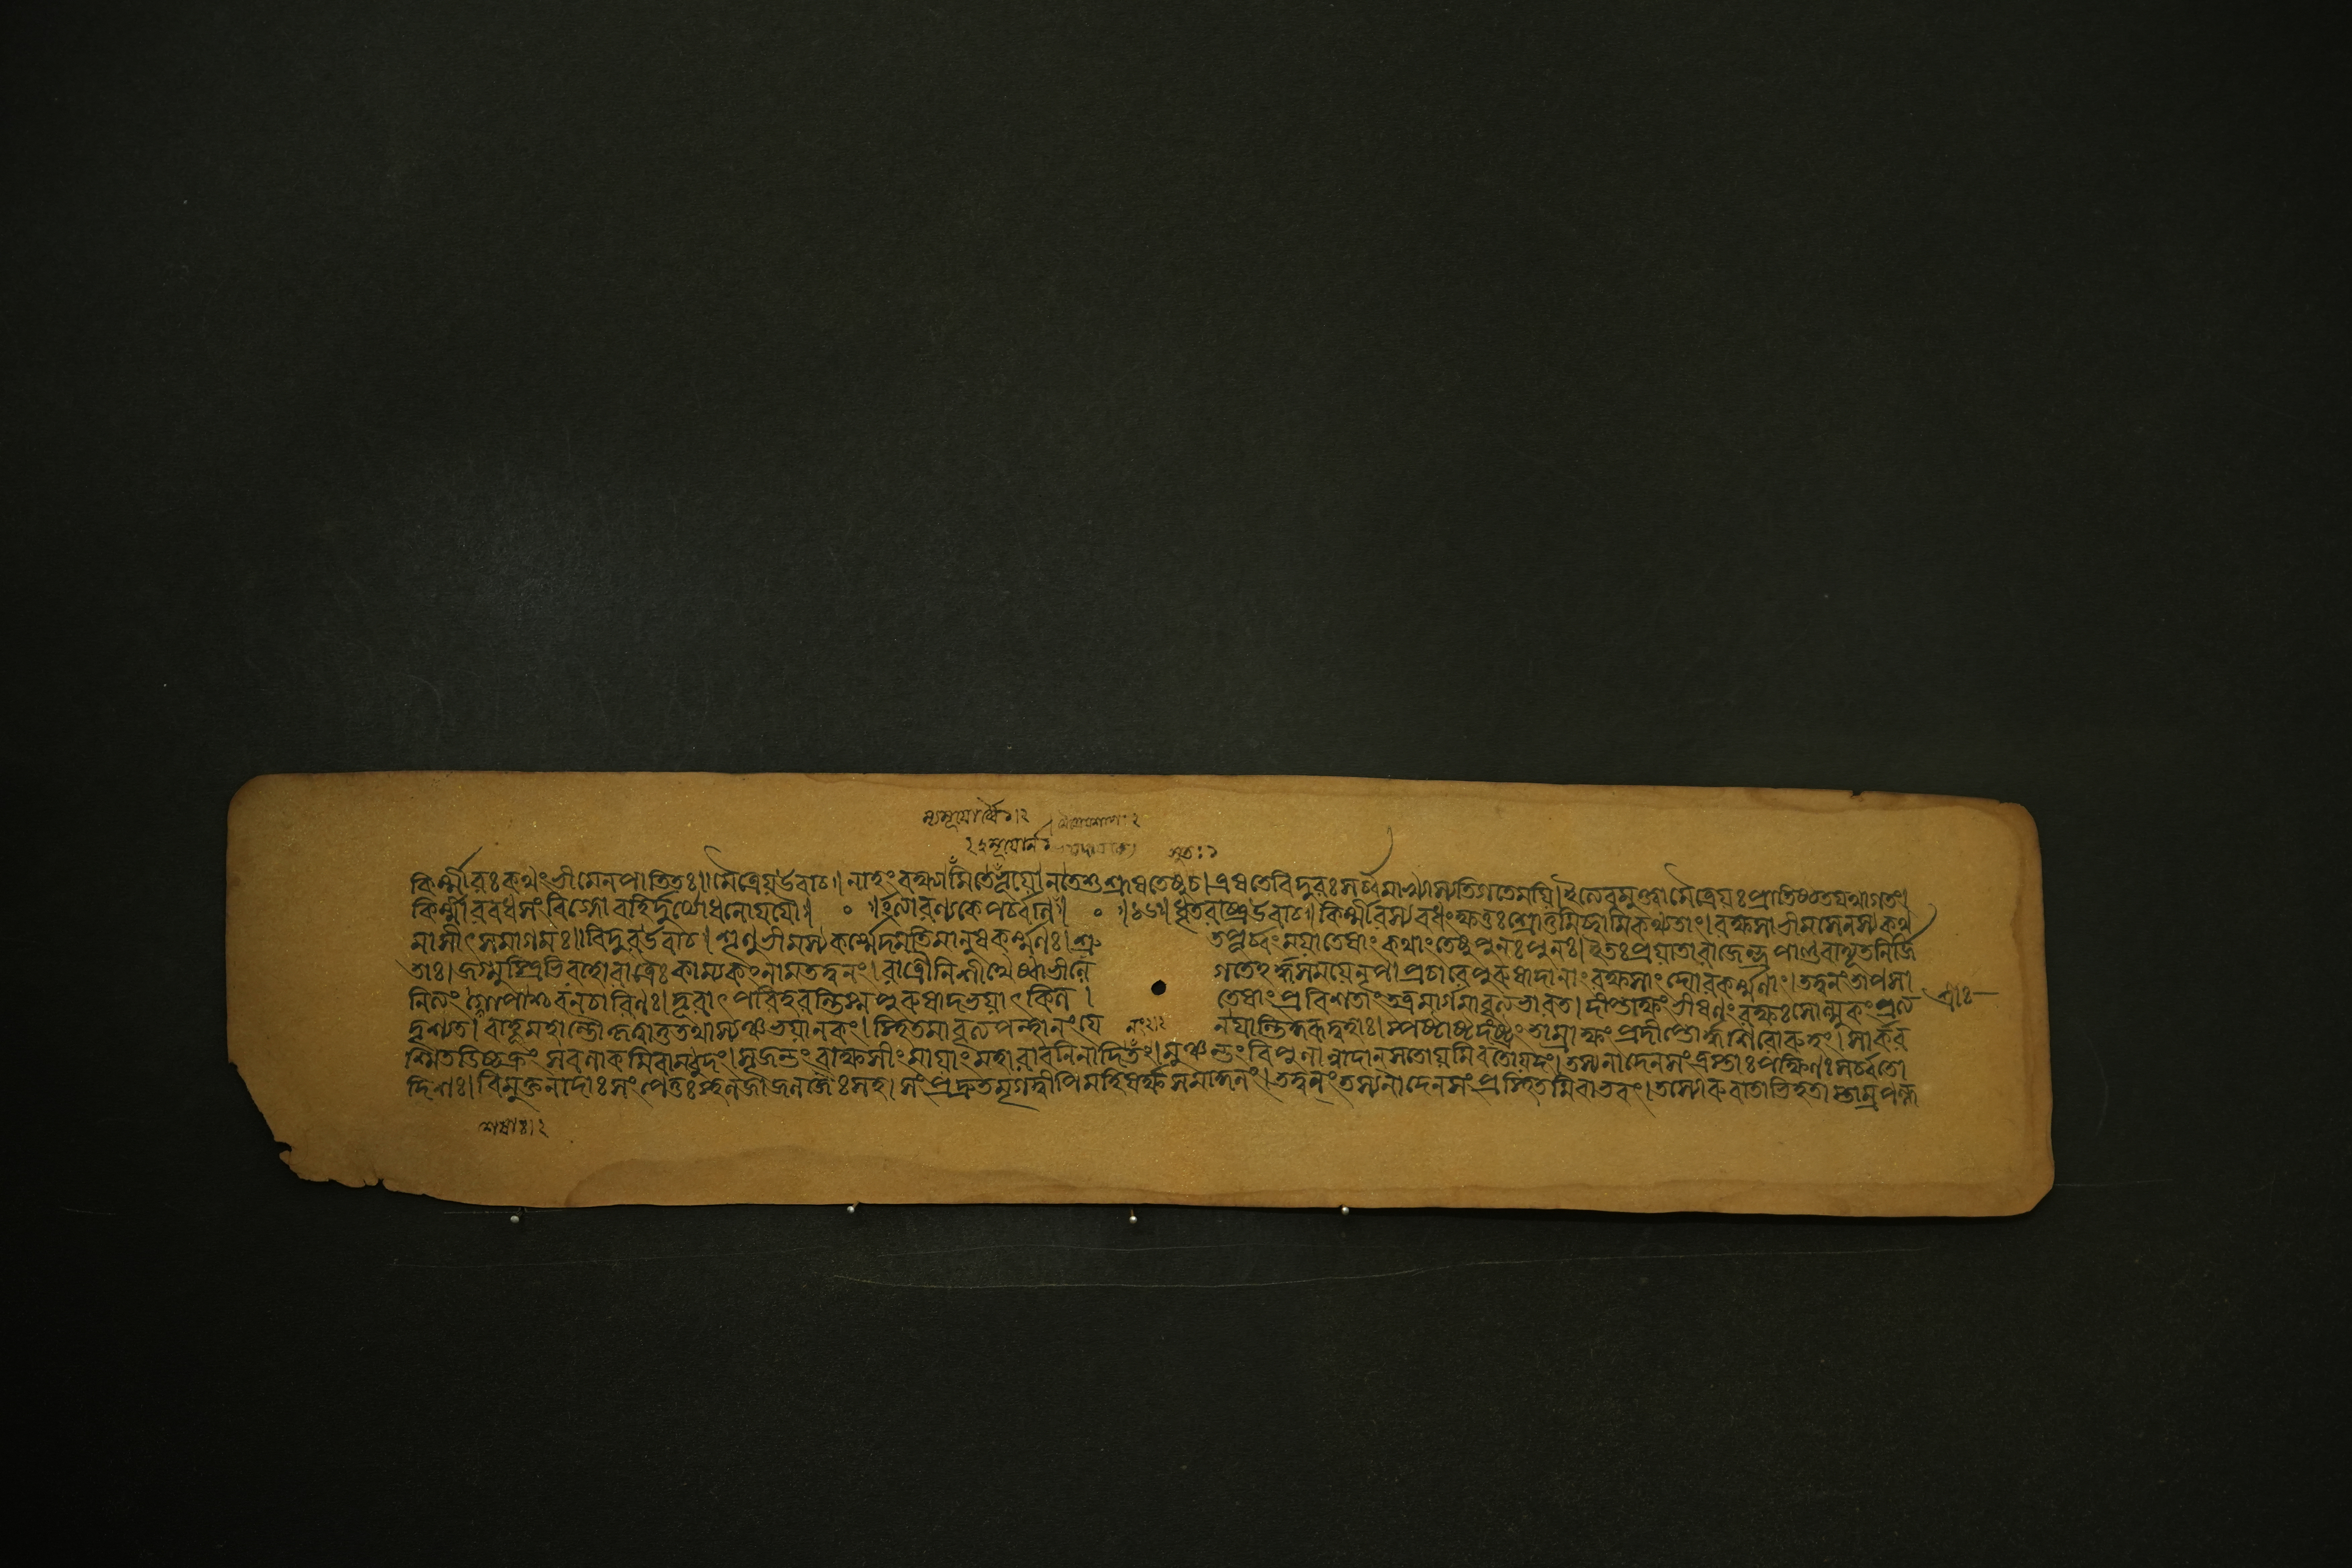 সুতঃ ১
কির্ম্মীরঃ কথং ভীমেন পাতিতঃ॥ মৈত্রেয় উবাচ॥ নাহং বক্ষ্যামি তে ভূয়ো ন তে শুশ্রূষতে সুত। এষ তে বিদুরঃ সর্ব্বমাখ্যাস্যতি গতে ময়ি। ইত্যেবমুক্ত্বা মৈত্রেয়ঃ প্রাতিষ্ঠত যথাগতং।
কির্ম্মীরবধসংবিগ্নো বহির্দুর্যোধনো যযৌ॥ ॰ ॥ইত্যারণ্যকে পর্ব্বনি॥ ॰ ॥১৬॥ ধৃতরাষ্ট্র উবাচ॥ কির্ম্মীরস্য বধং ক্ষত্তঃ শ্রোতুমিচ্ছামি কথ্যতাং। রক্ষসা ভীমসেনস্য কথ
মাসীৎ সমাগমঃ॥ বিদুর উবাচ। শৃণু ভীমস্য কর্ম্মেদমতিমানুষকর্ম্মণঃ। শ্রুতপূর্ব্বং ময়া তেষাং কথাংতেষু পুনঃ পুনঃ। ইতঃ প্রয়াতা রাজেন্দ্র পাণ্ডবা দ্যূতনির্জি
তাঃ। জগ্মুস্ত্রিভিরহোরাত্রৈঃ কাম্যকং নাম তদ্বনং। রাত্রৌ নিশীথে স্বাভীলে গতেঽর্দ্ধসময়ে নৃপ। প্রচারে পুরুষাদানাং রক্ষসাং ঘোরকর্ম্মণাং। তদ্বনং তাপসা
নিত্যং গোপাশ্চ বনচারিণঃ। দূরাৎ পরিহরন্তি স্ম পুরুষাদভয়াৎ কিল। তেষাং প্রবিশতাং তত্র মার্গমাবৃত্য ভারত। দীপ্তাক্ষং ভীষণং রক্ষঃ সোল্মুকং প্রত্য
দৃশ্যত। বাহূ মহান্তৌ কৃত্বা তু তথাস্যঞ্চ ভয়ানকং। স্থিতমাবৃত্য পন্থানং যেন যান্তি কুরূদ্বহাঃ। স্পষ্টাষ্টদংষ্ট্রং তাম্রাক্ষং প্রদীপ্তোর্দ্ধশিরোরুহং। সার্কর
শ্মিতডিচ্চক্রং সবলাকমিবাম্বুদং। সৃজন্তং রাক্ষসীং মায়াং মহারাবনিনাদিতং। মুঞ্চন্তং বিপুলান্নাদান্ সতোয়মিব তোয়দং। তস্য নাদেন সংত্রস্তাঃ পক্ষিণঃ সর্ব্বতো
দিশঃ। বিমুক্তনাদাঃ সংপেতুঃ স্থলজা জলজৈঃ সহ। সংপ্রদ্রুতমৃগদ্বীপিমহিষর্ক্ষসমাকুলং। তদ্বনং তস্য নাদেন সংপ্রস্থিতমিবাভবৎ। তস্যোরুবাতাভিহতা স্তাম্রপল্ল